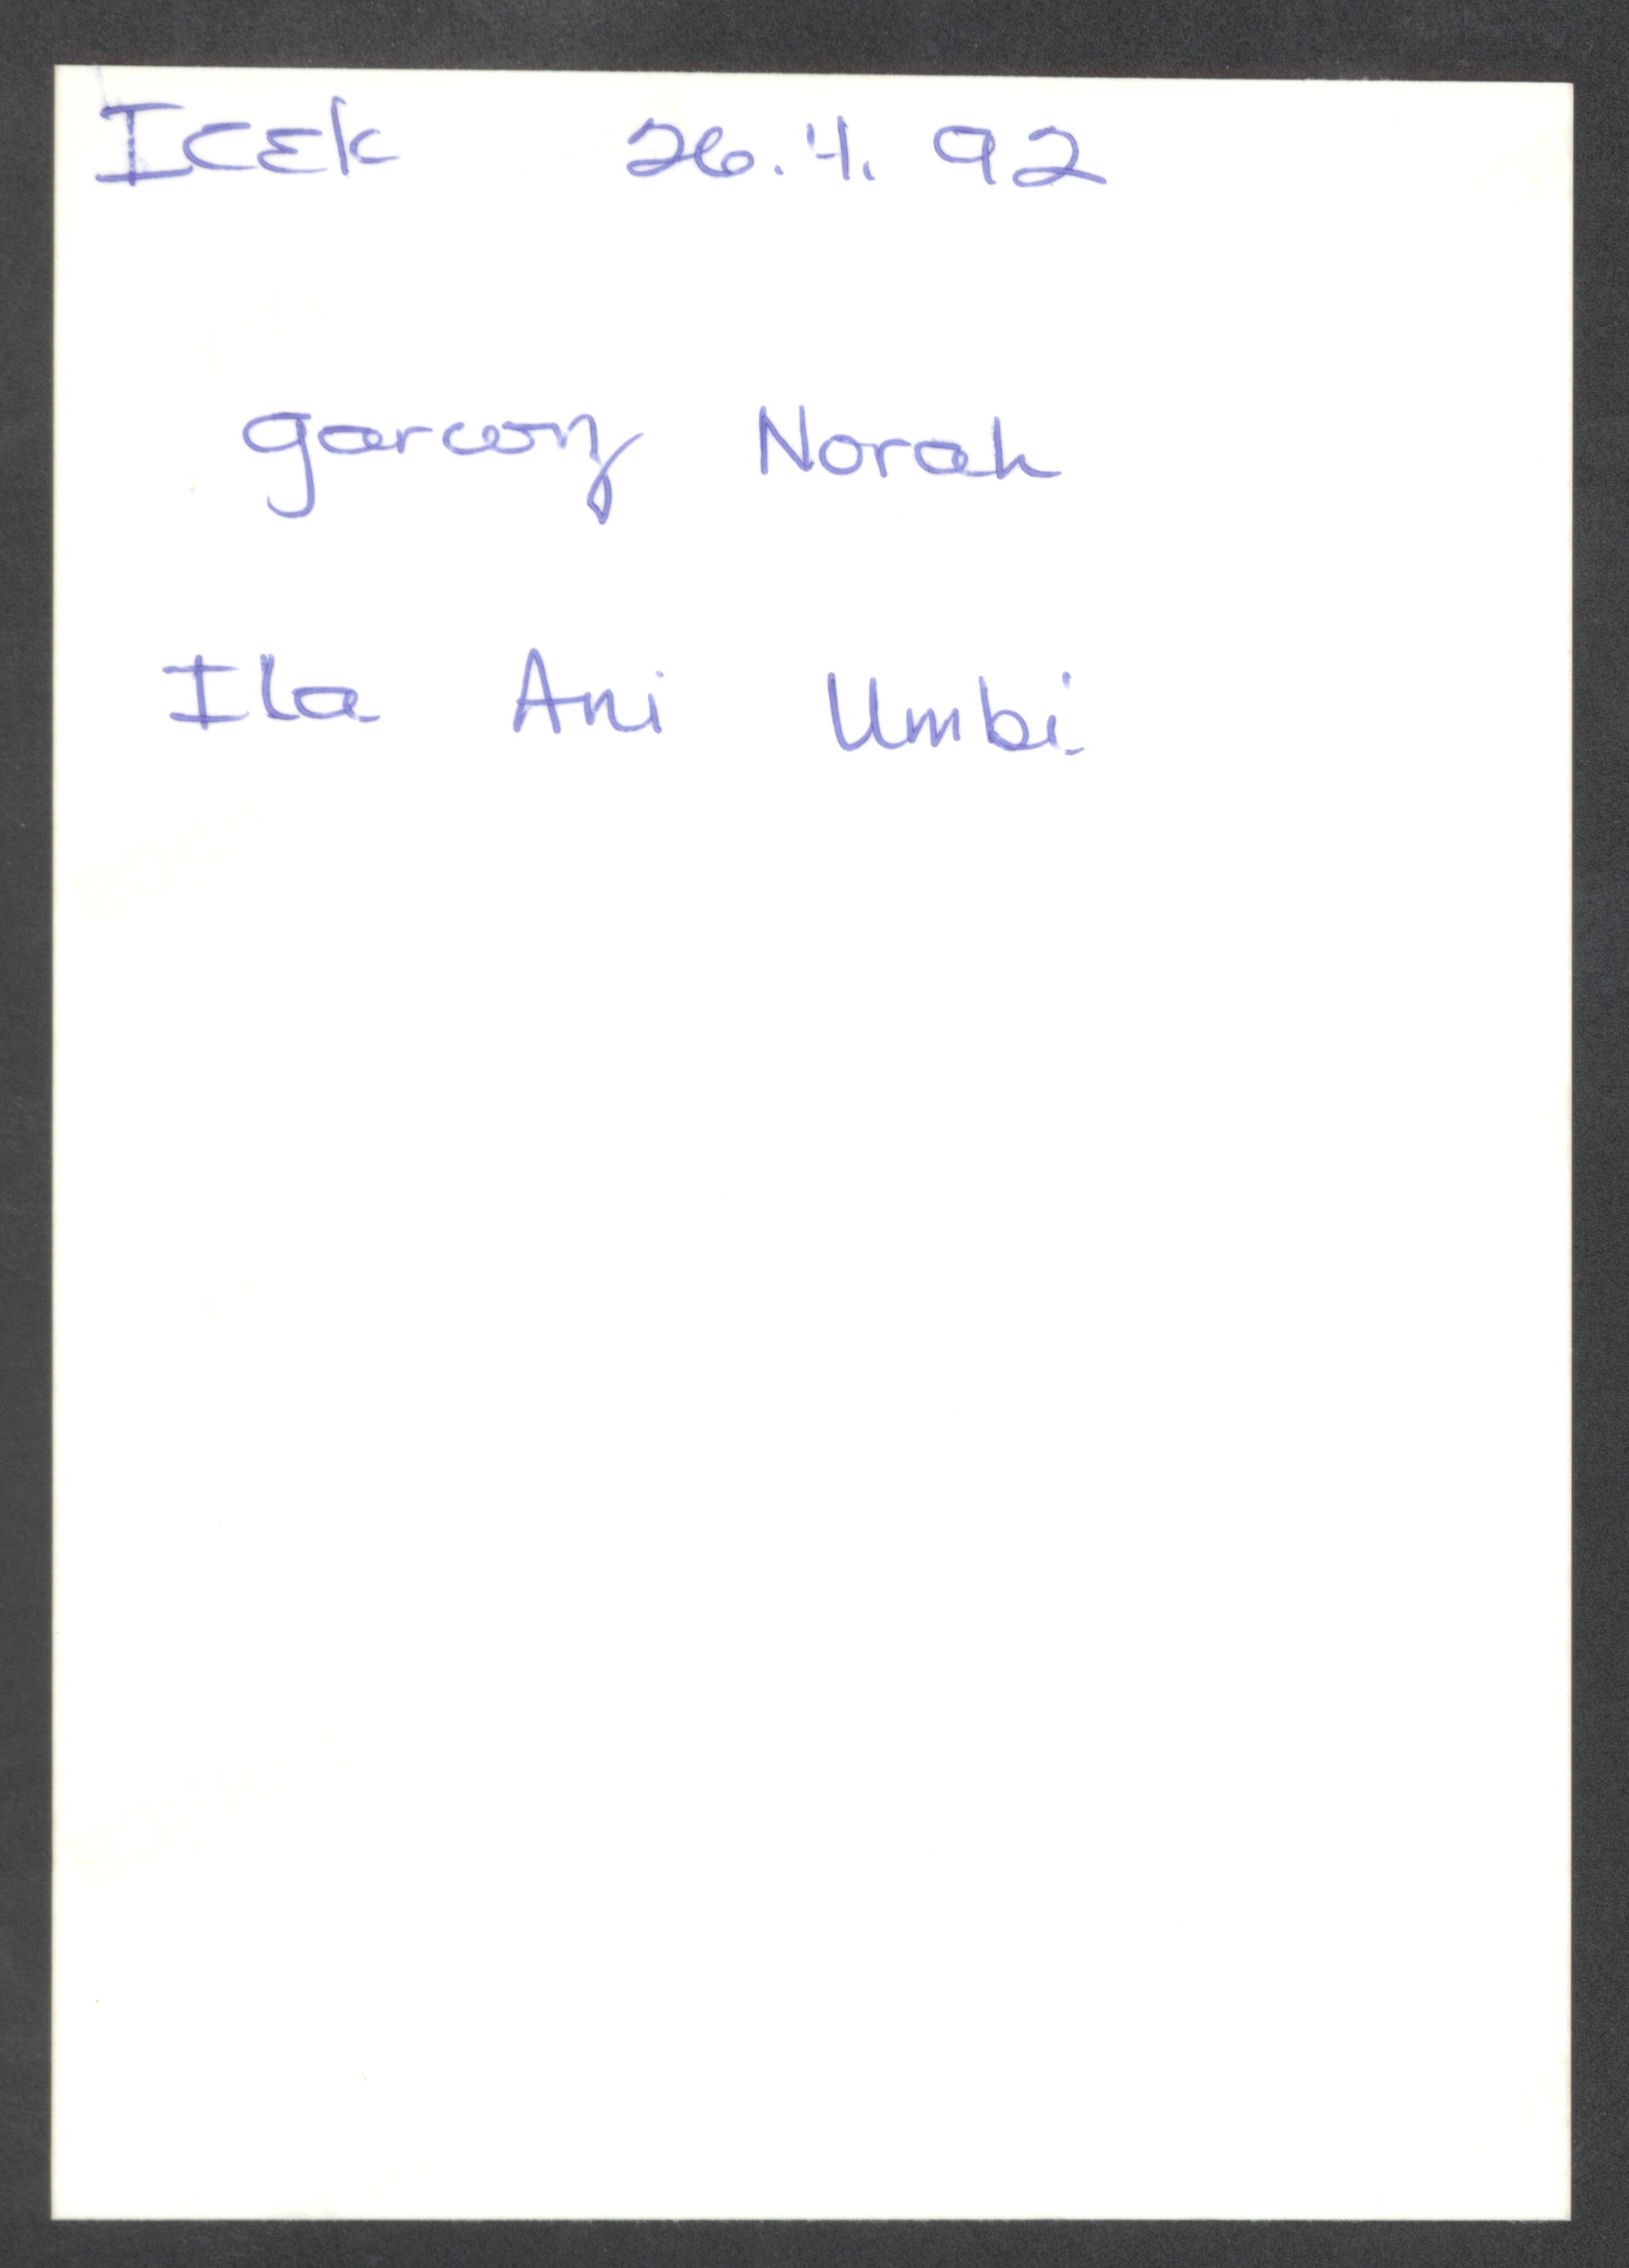 ICEK 26.4.92
Norah
Ila Ani Umbi